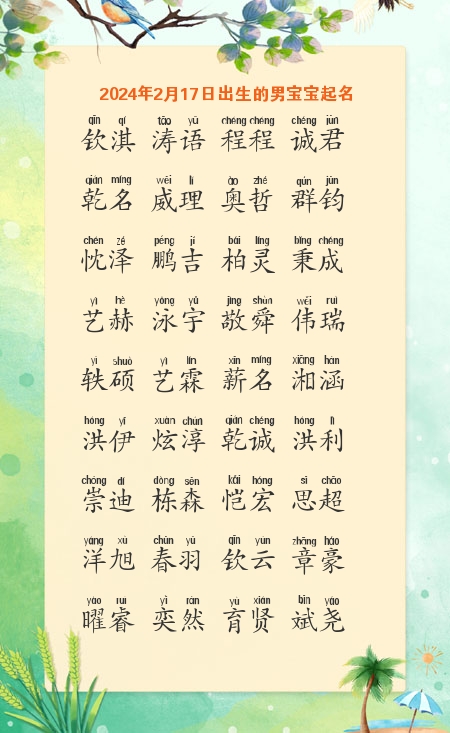 2024年2月17日出生的男宝宝起名
qīn qí tāo yǔ chéng chéng chéng jūn
钦淇 涛语 程程 诚君
qián míng wēi lǐ ào zhé qún jūn
乾名 威理 奥哲 群钧
chén zé péng jí bǎi líng bǐng chéng
忱泽 鹏吉 柏灵 秉成
yì hè yǒng yǔ jìng shùn wěi ruì
艺赫 泳宇 敬舜 伟瑞
yì shuò yì lín xīn míng xiāng hán
轶硕 艺霖 薪名 湘涵
hóng yī xuàn chún qián chéng hóng lì
洪伊 炫淳 乾诚 洪利
chóng dí dòng sēn kǎi hóng sī chāo
崇迪 栋森 恺宏 思超
yáng xù chūn yǔ qīn yún zhāng háo
洋旭 春羽 钦云 章豪
yào ruì yì rán yù xián bīn yáo
曜睿 奕然 育贤 斌尧